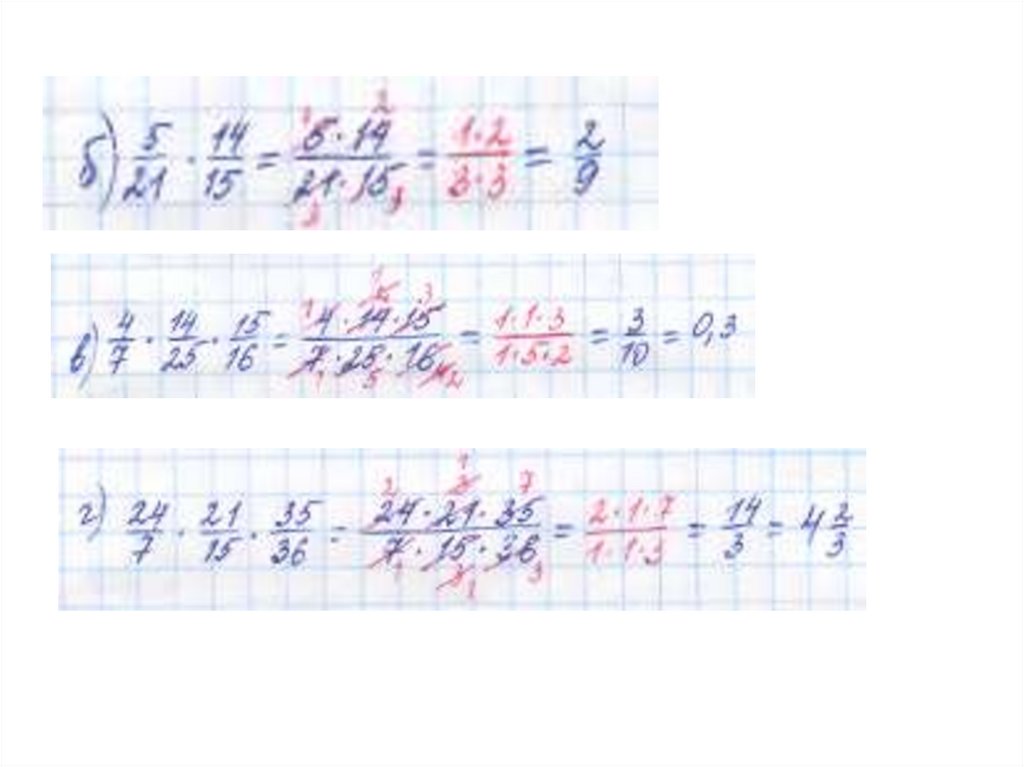 б) 5/21 · 14/15 = 5·14/21·15 = 1·2/3·3 = 2/9
в) 4/7 · 14/25 · 15/16 = 4·14·15/7·25·16 = 1·1·3/1·5·2 = 3/10 = 0,3
г) 24/7 · 21/15 · 35/36 = 24·21·35/7·15·36 = 2·1·7/1·1·3 = 14/3 = 4 2/3